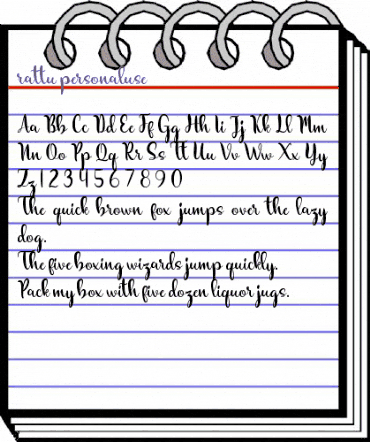 rattu personaluse
Aa Bb Cc Dd Ee Ff Gg Hh Ii Jj Kk Ll Mm
Nn Oo Pp Qq Rr Ss Tt Uu Vv Ww Xx Yy
Zz 1 2 3 4 5 6 7 8 9 0
The quick brown fox jumps over the lazy
dog.
The five boxing wizards jump quickly.
Pack my box with five dozen liquor jugs.